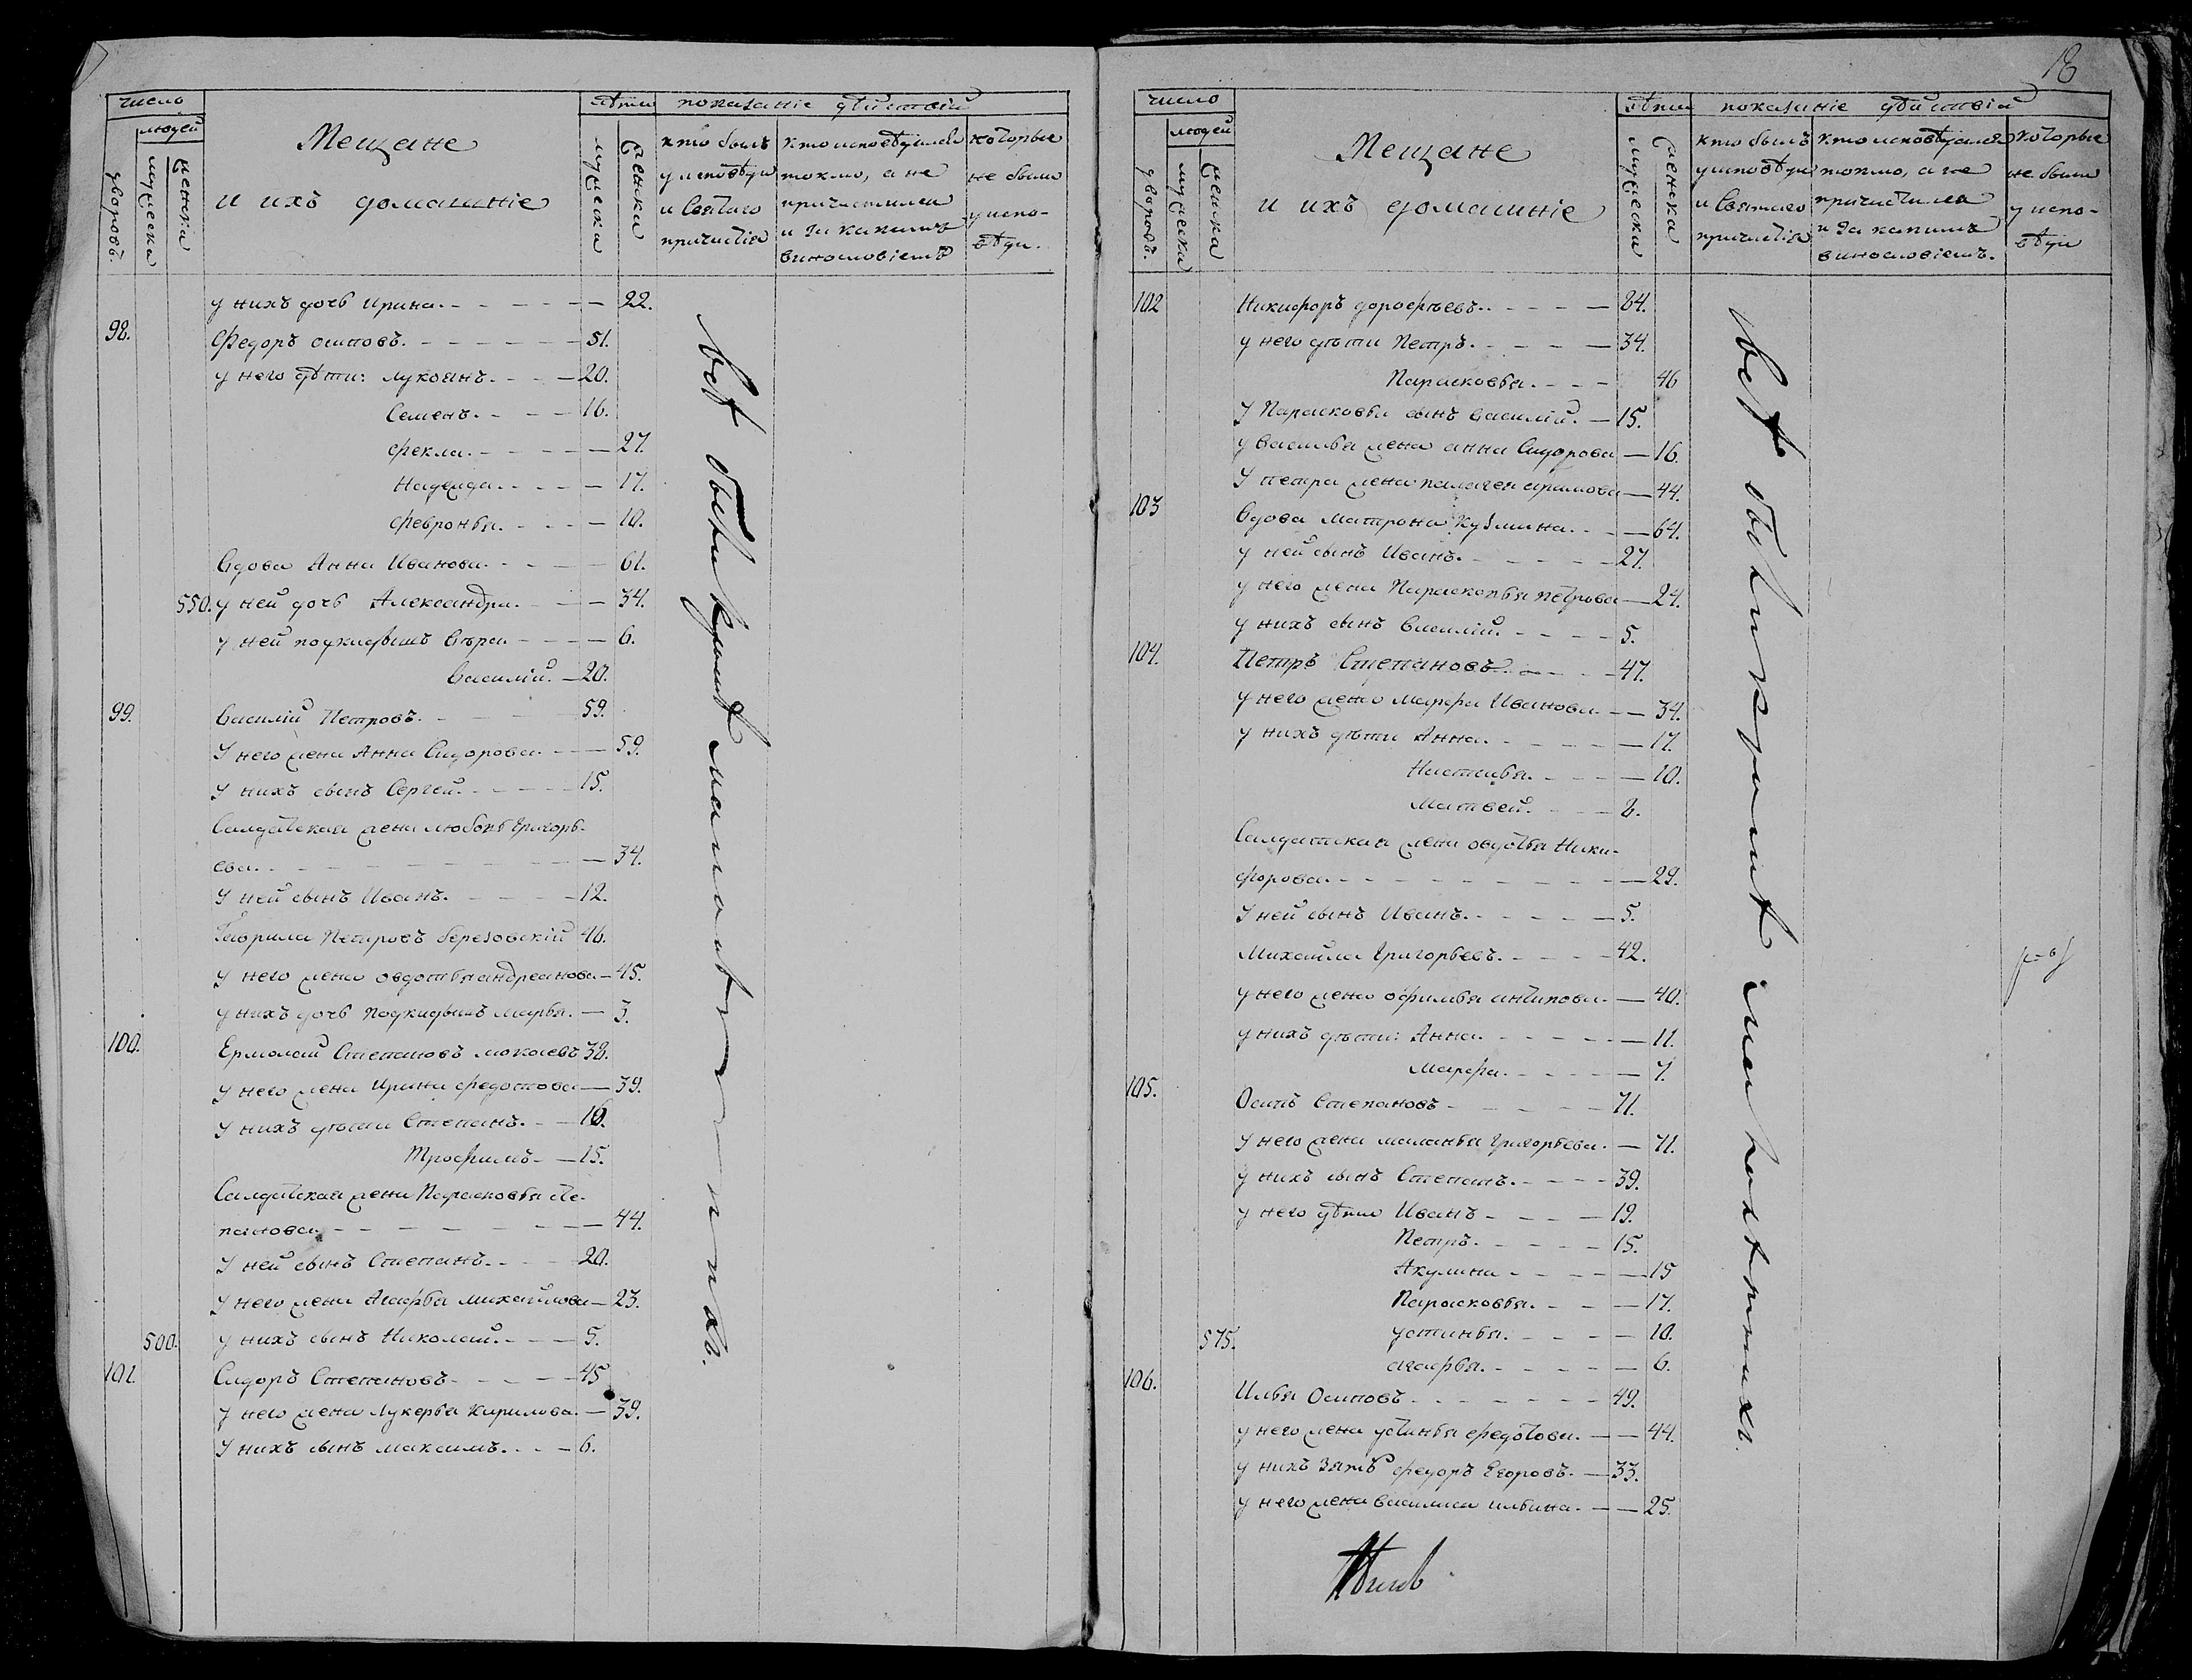 число
людей
дворовъ.
мужеска
женска
Мещане
и ихъ домашніе
лѣта
мужеска
женска
показаніе дѣйствій
кто былъ
у исповѣди
и Святаго
причастія
кто исповѣдался
токмо, а не
причастился
и за какимъ
винословіемъ
которые
не были
у испо-
вѣди.
у нихъ дочь Ирина. 22.
98. Федоръ осиповъ. 51.
у него дѣти: лукоянъ. 20.
Семенъ. 16.
фекла. 27.
Надежда. 17.
февронья. 10.
вдова Анна Иванова. 61.
550. у ней дочь Александра. 34.
у ней подкидышъ вѣра 6.
василій. 20.
99. василій Петровъ. 59.
У него жена Анна Сидорова. 59.
У нихъ сынъ Сергей. 15.
Салдатская жена любовь григорь-
ева. 34.
У ней сынъ Иванъ. 12.
Гаврила Петровъ березовскій 46.
у него жена овдотья андреанова 45.
у нихъ дочь подкидышъ марья. 3.
100. Ермолай Степановъ мокаевъ 38.
у него жена Ирина федотова 39.
у нихъ дѣти Степанъ. 16.
Трофимъ. 15.
Салдатская жена Парасковья сте-
панова 44.
У ней сынъ Степанъ. 20.
у него жена Агафья михайлова 23.
500. у нихъ сынъ Николай. 5.
101. Сидоръ Степановъ. 45
у него жена лукерья Кирилова. 39.
У нихъ сынъ максимъ. 6.
18
число
людей
дворовъ.
мужеска
женска
Мещане
и ихъ домашніе
лѣта
мужеска
женска
показаніе дѣйствій
кто былъ
у исповѣди
и Святаго
причастія
кто исповѣдался
токмо, а не
причастился
и за какимъ
винословіемъ.
которые
не были
у испо-
вѣди
102 Никифоръ дорофѣевъ. 84.
у него дѣти Петръ. 34.
Парасковья. 46
У Парасковьи сынъ василій. 15.
у василья жена анна Сидорова 16.
У петра жена палагея
44.
103 вдова матрона Кузмина. 64.
у ней сынъ Иванъ. 27.
у него жена Парасковья петрова 24.
у нихъ сынъ василій. 5.
104. Петръ Степановъ 47.
у него жена марфа Иванова 34.
у нихъ дѣти Анна. 17.
Настасья. 10.
матвей. 8.
Салдатская жена овдотья Ники-
форова. 29.
У ней сынъ Иванъ. 5.
михаила григорьевъ. 42.
у него жена офимья антипова. 40.
у нихъ дѣти: Анна. 11.
марфа. 7.
105. Осипъ Степановъ 71.
у него жена маланья григорьева. 71.
у нихъ сынъ Степанъ. 39.
у него дѣти Иванъ 19.
Петръ. 15.
Акулина 15
Парасковья. 17.
575. устинья. 10.
агафья. 6.
106. Илья Осиповъ 49.
у него жена устинья федотова. 44.
у нихъ зять федоръ Егоровъ. 33.
у него жена василиса ильина. 25.